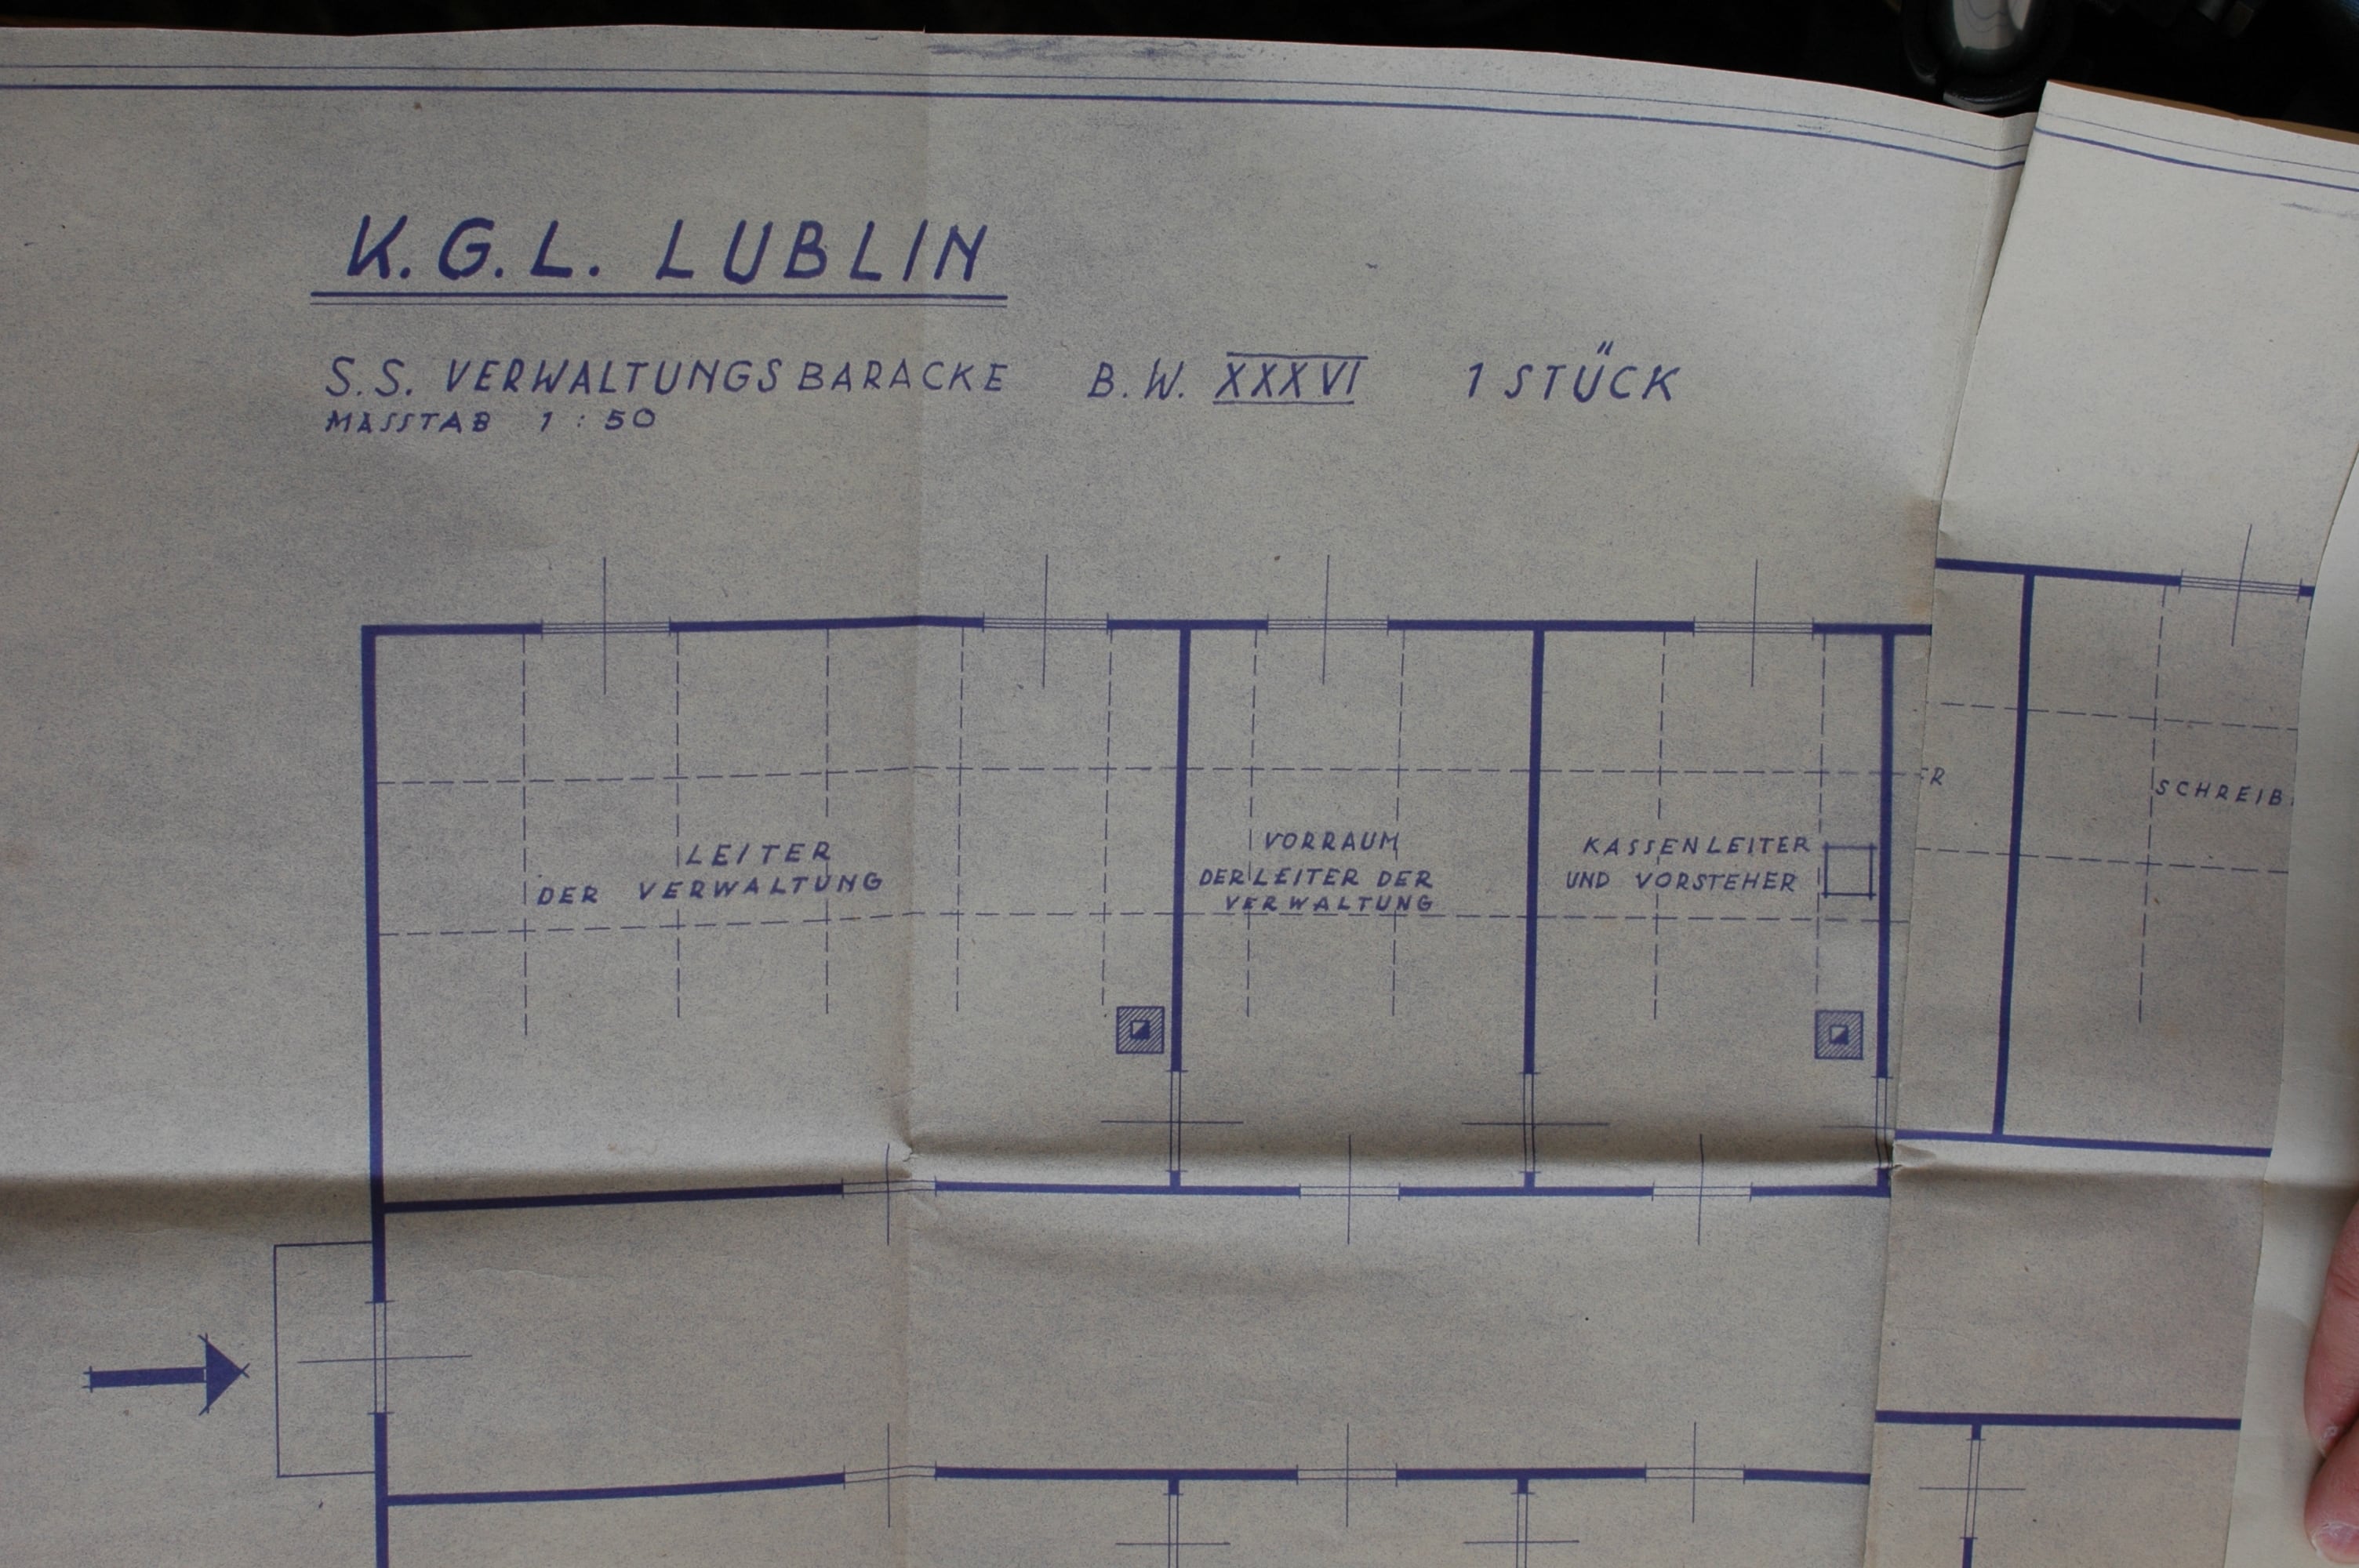 K.G.L. LUBLIN
S.S. VERWALTUNGSBARACKE B.W. XXXVI 1 STÜCK
MASSTAB 1:50
LEITER
DER VERWALTUNG
VORRAUM
DER LEITER DER
VERWALTUNG
KASSENLEITER
UND VORSTEHER
ER
SCHREIB